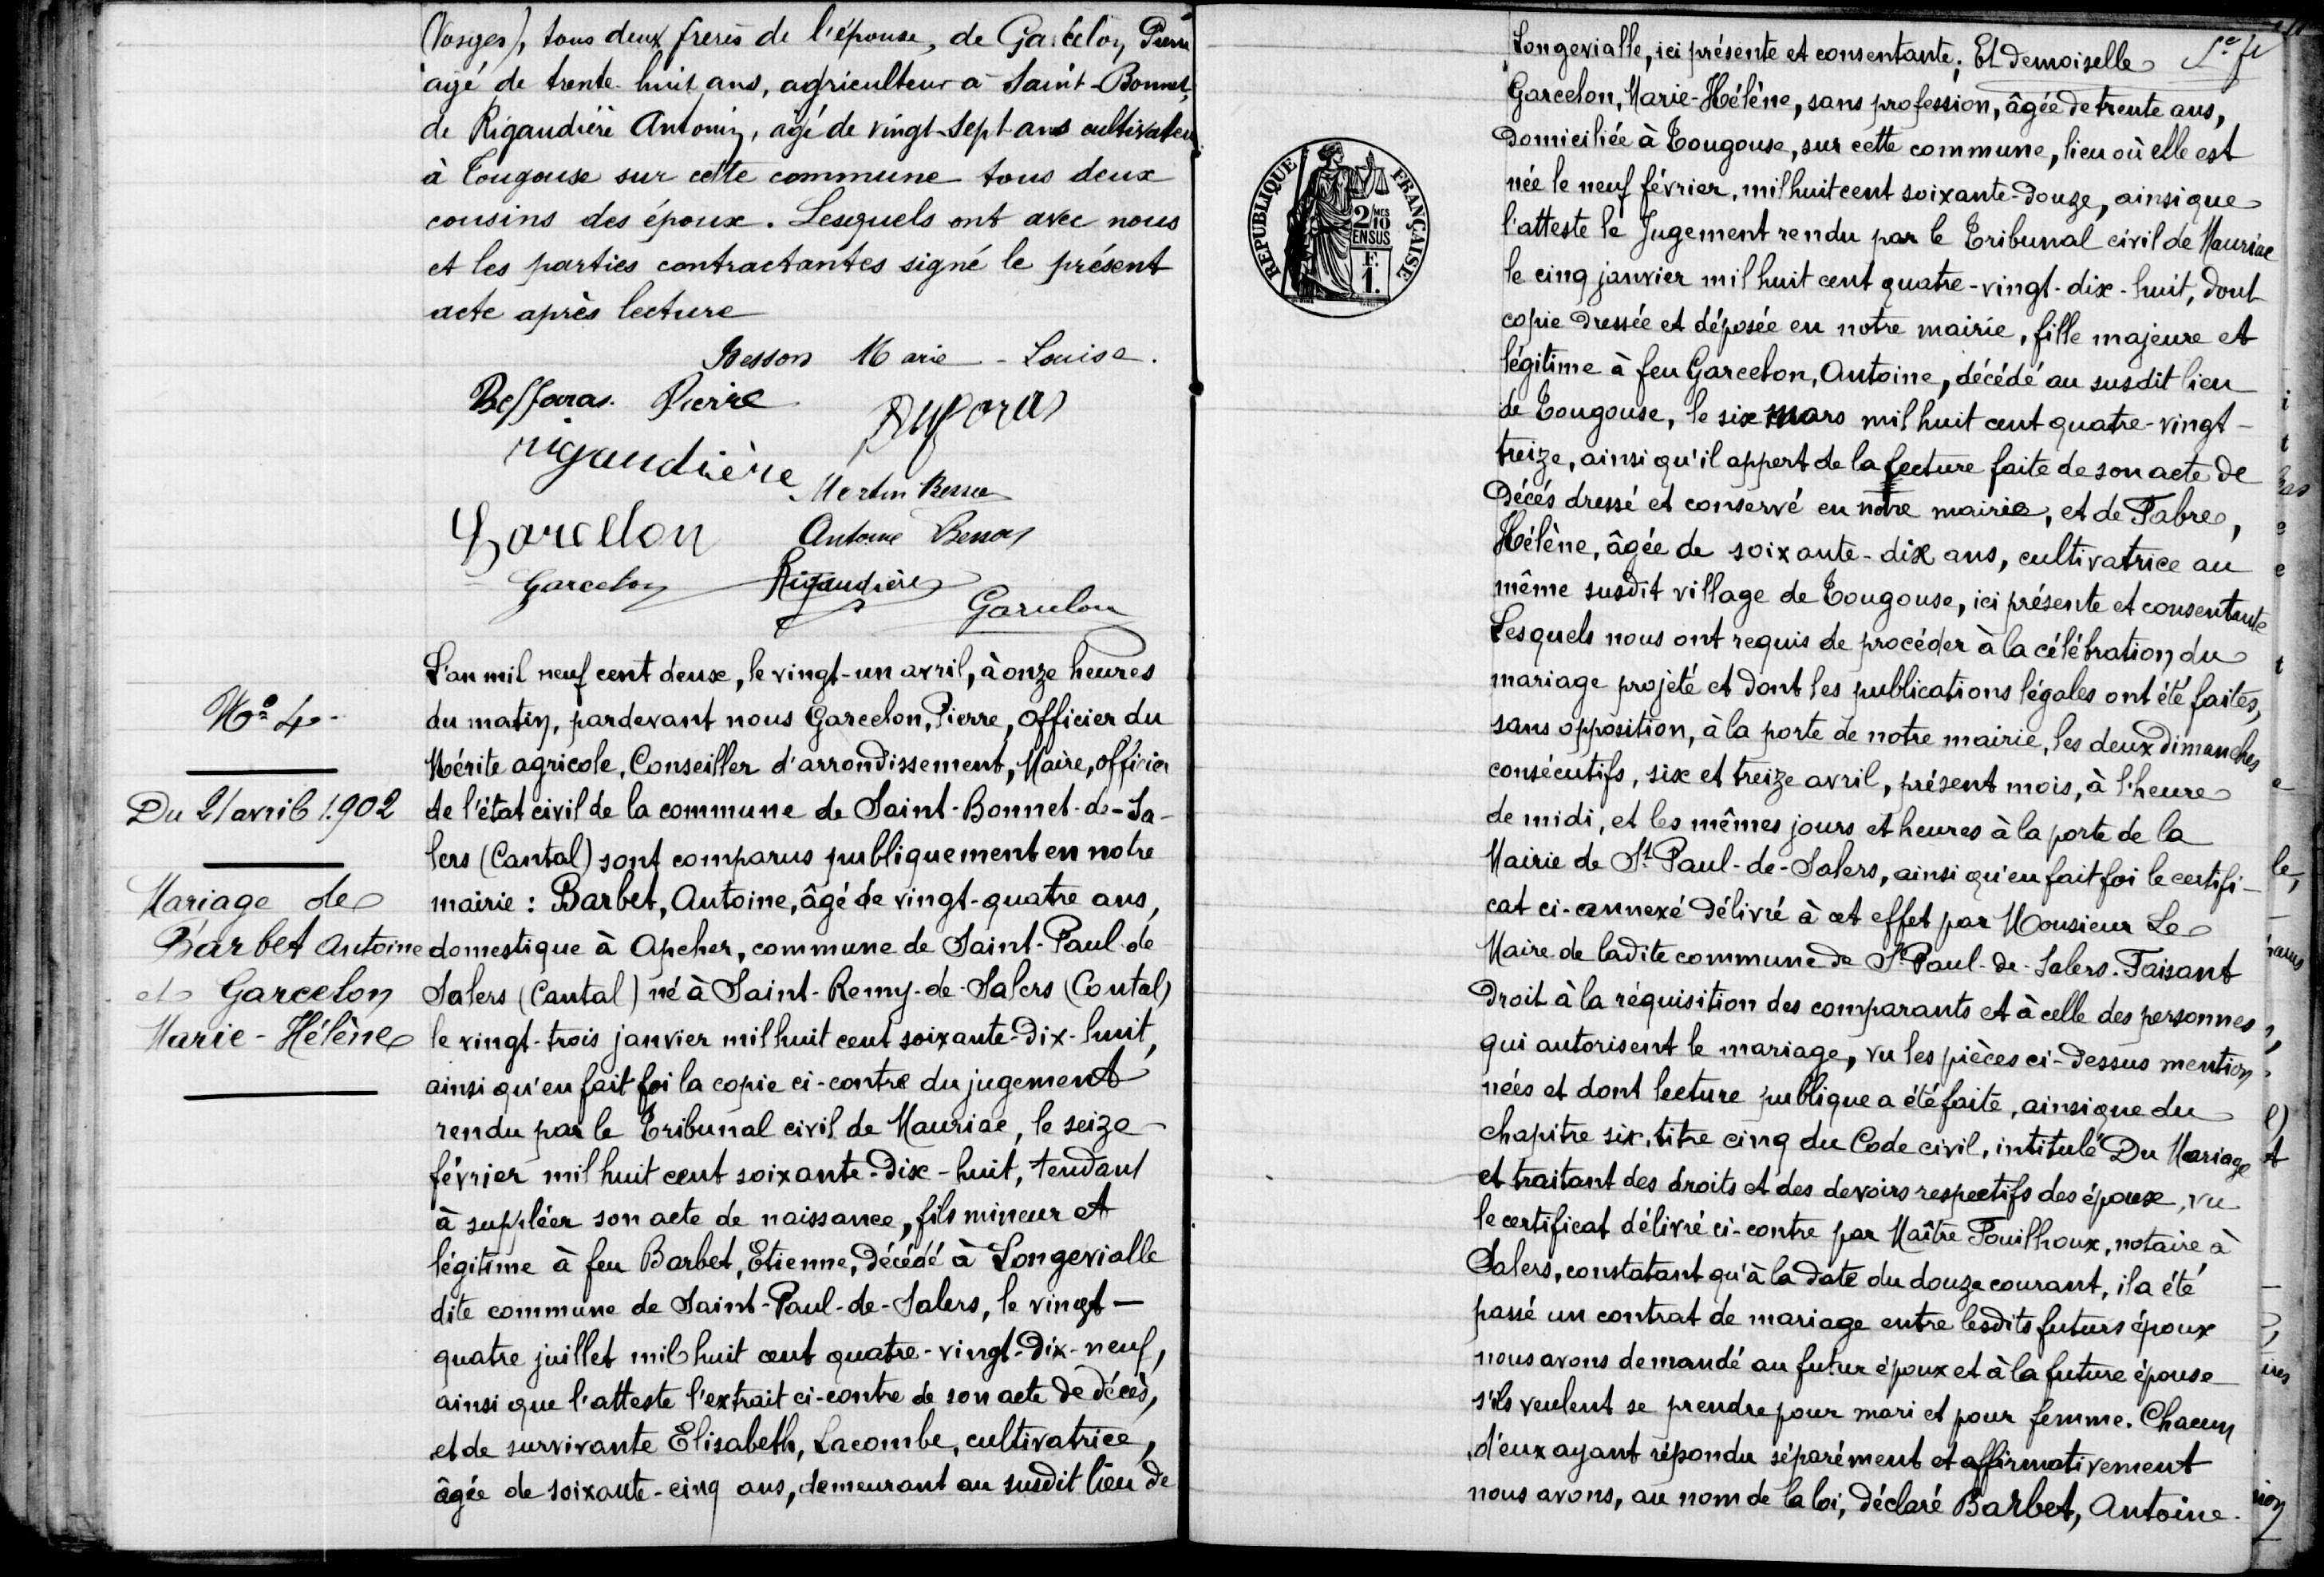 (Vosges), tous deux frères de l'épouse, de Garcelon Pierre
âgé de trente-huit ans, agriculteur à Saint-Bonnet,
de Rigaudière Antonin, âgé de vingt-sept ans cultivateur
à Tougouse sur cette commune tous deux
cousins des époux. Lesquels ont avec nous
et les parties contractantes signé le présent
acte après lecture
Besson Marie-Louise.
Beffaras Pierre
rigaudière
Martin Besson
Garcelon
Antoine Besson
Garcelon
Rigaudière
Garcelon
No 4
Du 21 avril 1902
Mariage de
Barbet Antoine
et Garcelon
Marie-Hélène
L'an mil neuf cent deux, le vingt-un avril, à onze heures
du matin, pardevant nous Garcelon, Pierre, Officier du
Mérite agricole, Conseiller d'arrondissement, Maire, officier
de l'état civil de la commune de Saint-Bonnet-de-Sa-
lers (Cantal) sont comparus publiquement en notre
mairie : Barbet, Antoine, âgé de vingt-quatre ans,
domestique à Apcher, commune de Saint-Paul-de
Salers (Cantal) né à Saint-Remy-de-Salers (Cantal)
le vingt-trois janvier mil huit cent soixante-dix-huit,
ainsi qu'en fait foi la copie ci-contre du jugement
rendu par le Tribunal civil de Mauriac, le seize
février mil huit cent soixante-dix-huit, tendant
à suppléer son acte de naissance, fils mineur et
légitime à feu Barbet, Etienne, décédé à Longevialle
dite commune de Saint-Paul-de-Salers, le vingt-
quatre juillet mil huit cent quatre-vingt-dix-neuf,
ainsi que l'atteste l'extrait ci-contre de son acte de décès,
et de survivante Elisabeth, Lacombe, cultivatrice,
âgée de soixante-cinq ans, demeurant au susdit lieu de
REPUBLIQUE FRANÇAISE
2/10 MES
EN SUS
F.
1.
Longevialle, ici présente et consentante ; Et demoiselle
Garcelon, Marie-Hélène, sans profession, âgée de trente ans,
domiciliée à Tougouse, sur cette commune, lieu où elle est
née le neuf février, mil huit cent soixante-douze, ainsi que
l'atteste le Jugement rendu par le Tribunal civil de Mauriac
le cinq janvier mil huit cent quatre-vingt-dix-huit, dont
copie dressée et déposée en notre mairie, fille majeure et
légitime à feu Garcelon, Antoine, décédé au susdit lieu
de Tougouse, le six mars mil huit cent quatre-vingt-
treize, ainsi qu'il appert de la lecture faite de son acte de
décès dressé et conservé en notre mairie, et de Fabre,
Hélène, âgée de soixante-dix ans, cultivatrice au
même susdit village de Tougouse, ici présente et consentante
Lesquels nous ont requis de procéder à la célébration du
mariage projeté et dont les publications légales ont été faites,
sans opposition, à la porte de notre mairie, les deux dimanches
consécutifs, six et treize avril, présent mois, à l'heure
de midi, et les mêmes jours et heures à la porte de la
Mairie de St Paul-de-Salers, ainsi qu'en fait foi le certifi-
cat ci-annexé délivré à cet effet par Monsieur Le
Maire de ladite commune de St Paul-de-Salers. Faisant
droit à la réquisition des comparants et à celle des personnes
qui autorisent le mariage, vu les pièces ci-dessus mention
nées et dont lecture publique a été faite, ainsi que du
chapitre six, titre cinq du Code civil, intitulé Du Mariage
et traitant des droits et des devoirs respectifs des époux, vu
le certificat délivré ci-contre par Maître Fouilhoux, notaire à
Salers, constatant qu'à la date du douze courant, il a été
passé un contrat de mariage entre lesdits futurs époux
nous avons demandé au futur époux et à la future épouse
s'ils veulent se prendre pour mari et pour femme. Chacun
d'eux ayant répondu séparément et affirmativement
nous avons, au nom de la loi, déclaré Barbet, Antoine